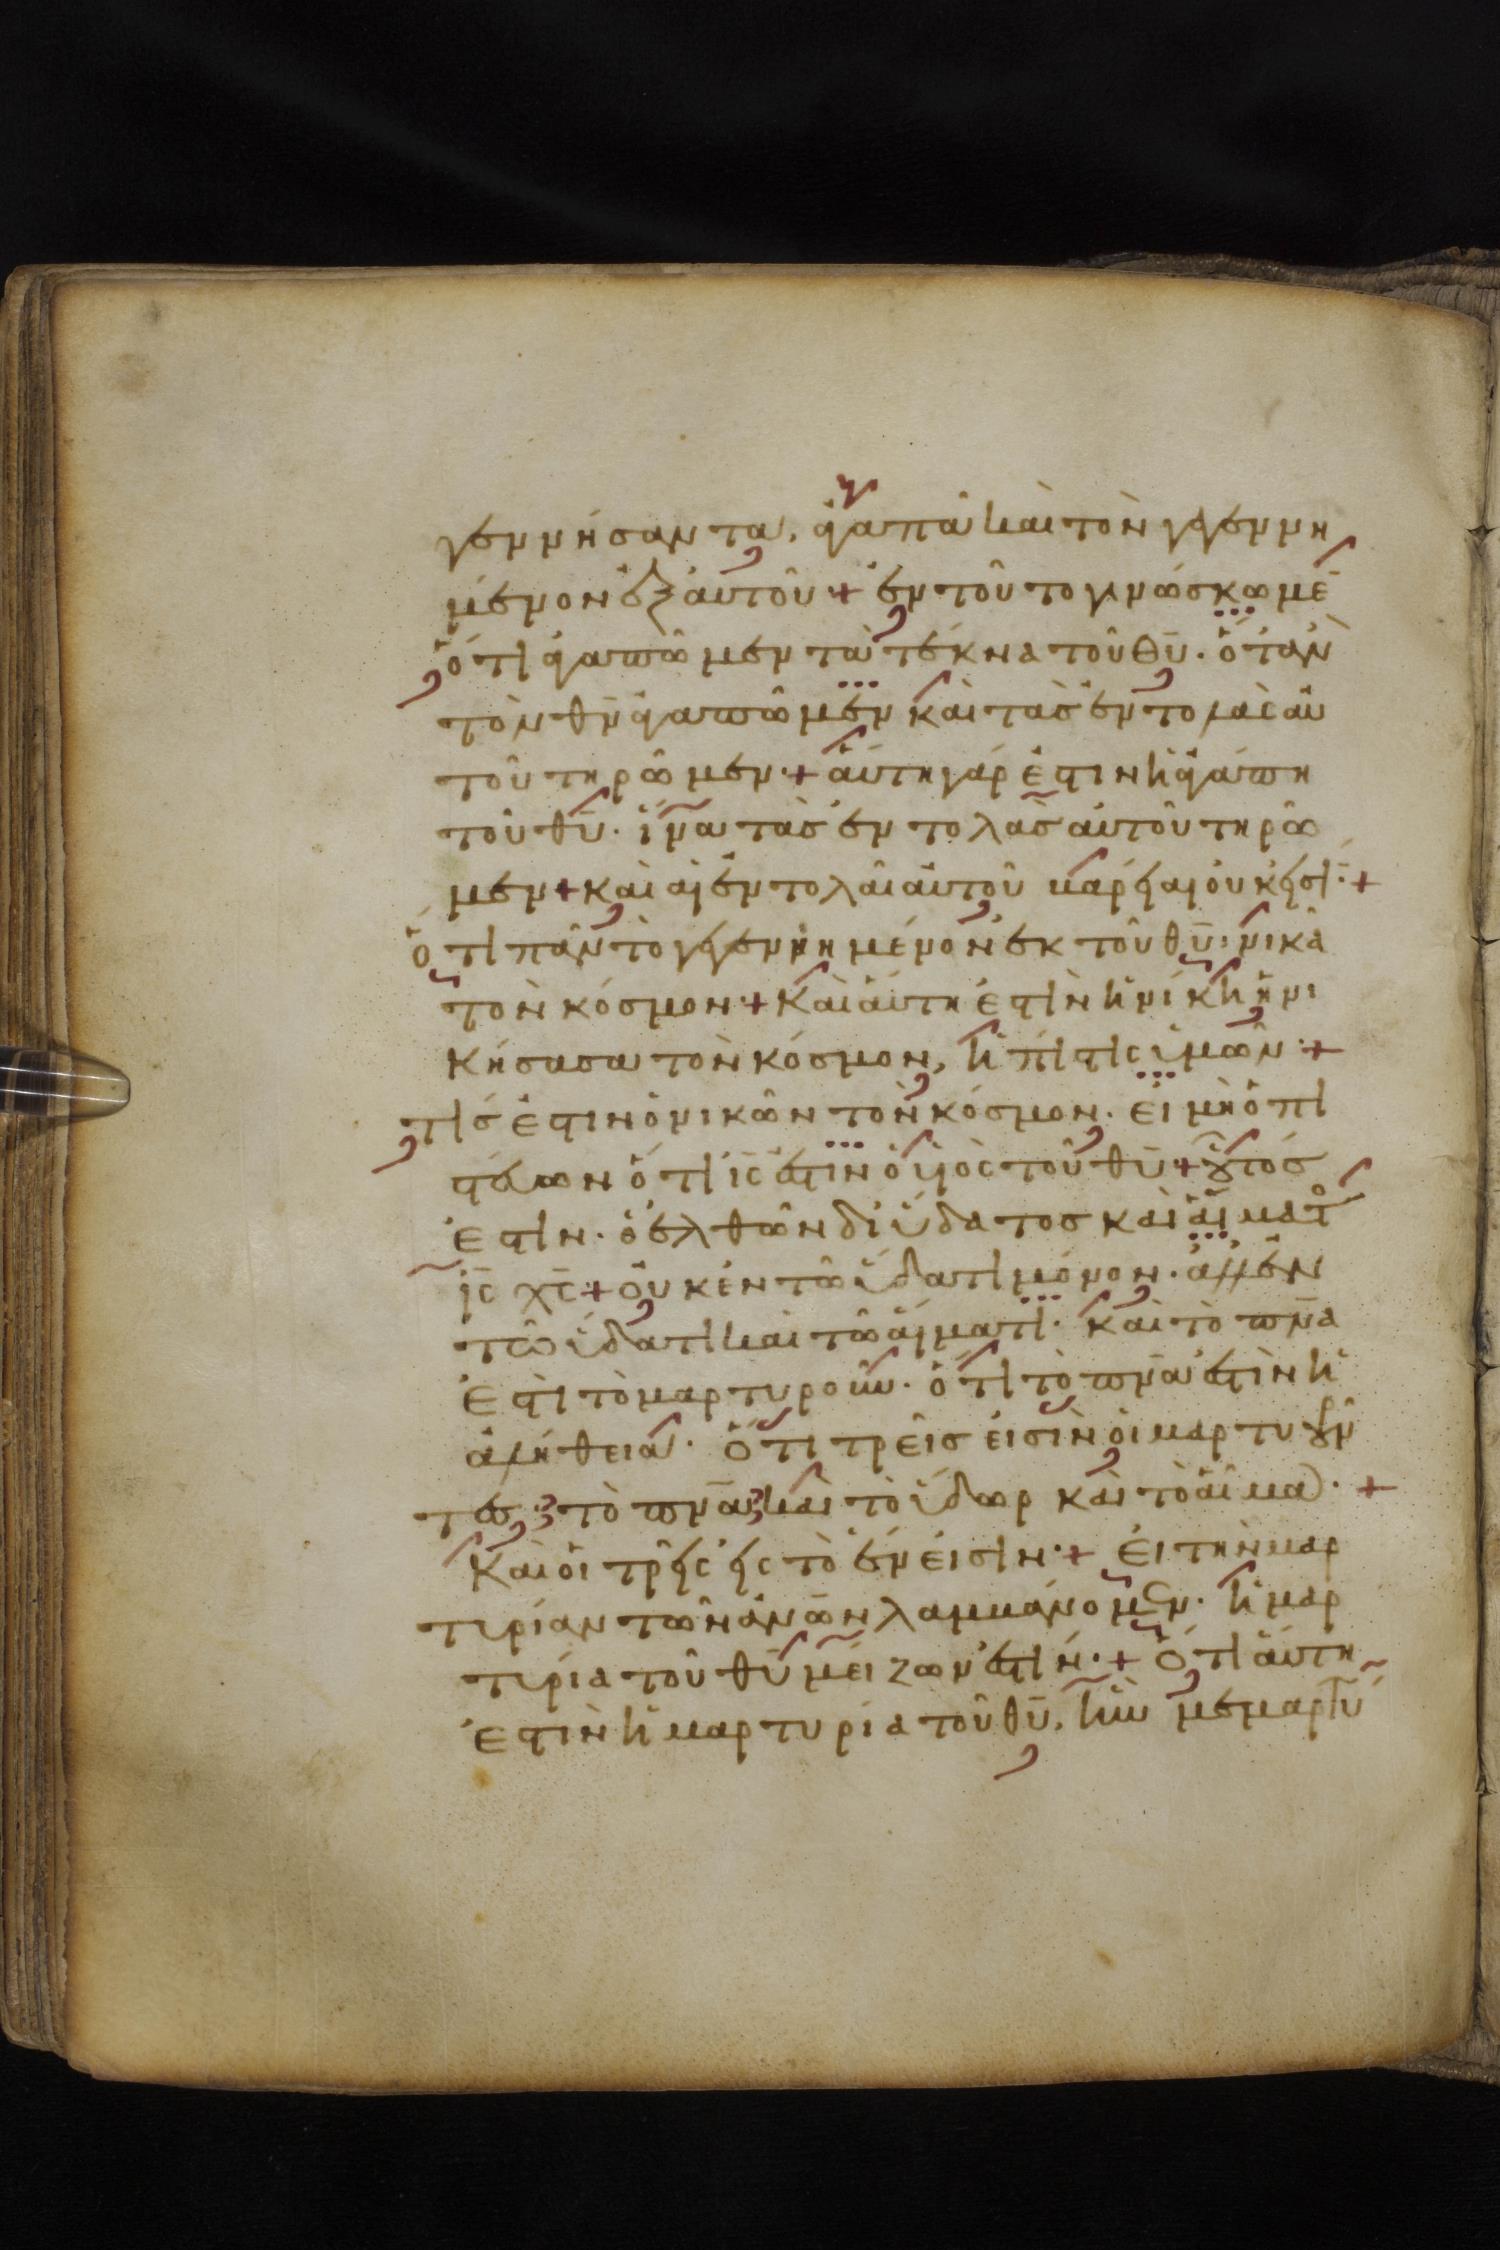 γεννήσαντα, ἀγαπᾶ καὶ τὸν γεγεννη
μένον ἐξ αὐτοῦ·+ ἐν τούτο γινώσκωμε̄
ὅτι ἀγαπῶμεν τὰ τέκνα τοῦ θ̅υ̅. ὅταν
τὸν θ̅ν̅ ἀγαπῶμεν καὶ τὰς ἐντολὰς αὐ
τοῦ τηρῶμεν·+ αὕτη γάρ ἐστιν ἡ ἀγάπη
τοῦ θ̅υ̅. ἵνα τὰς ἐντολὰς αὐτοῦ τηρῶ
μεν + καὶ αἱ ἐντολαὶ αὐτοῦ βαρείαι οὐκ εἰσί̄·+
ὅτι πᾶν τὸ γεγεννημένον ἐκ τοῦ θ̅υ̅· νικᾶ
τὸν κόσμον·+ Καὶ αὕτη ἐστὶν ἡ νίκη ἡ νι
κήσασα τὸν κόσμον, ἡ πίστις ὑμῶν·+
τίς ἐστιν ὁ νικῶν τὸν κόσμον. εἰ μὴ ὁ πι
στεύων ὅτι ι̅ς̅ ἐστιν ὁ υἱὸς τοῦ θ̅υ̅ + οὗτός
ἐστιν. ὁ ἐλθὼν δι' ὕδατος καὶ αἵματο
ι̅ς̅ χ̅ς̅ + οὐκ ἐν τῶ ὕδατι μόνον. ἀλλ' ἐν
τῶ ὕδατι καὶ τῶ αἵματι· καὶ τὸ π̅ν̅α̅
ἐστὶ τὸ μαρτυροῦν. ὅτι τὸ π̅ν̅α̅ ἐστὶν ἡ
ἀλήθεια. Ὅτι τρεῖς εἰσὶν οἱ μαρτυροῦν
τες· τὸ π̅ν̅α̅ καὶ τὸ ὕδωρ καὶ τὸ αἷμα·+
Καὶ οἱ τρεῖς εἰς τὸ ἕν εἰσιν·+ εἰ τὴν μαρ
τυρίαν τῶν ἀ̅ν̅ω̅ν̅ λαμβάνομεν. ἡ μαρ
τυρία τοῦ θ̅υ̅ μείζων ἐστίν·+ Ὅτι αὕτη
ἐστὶν ἡ μαρτυρία τοῦ θ̅υ̅, ἣν μεμαρτύ